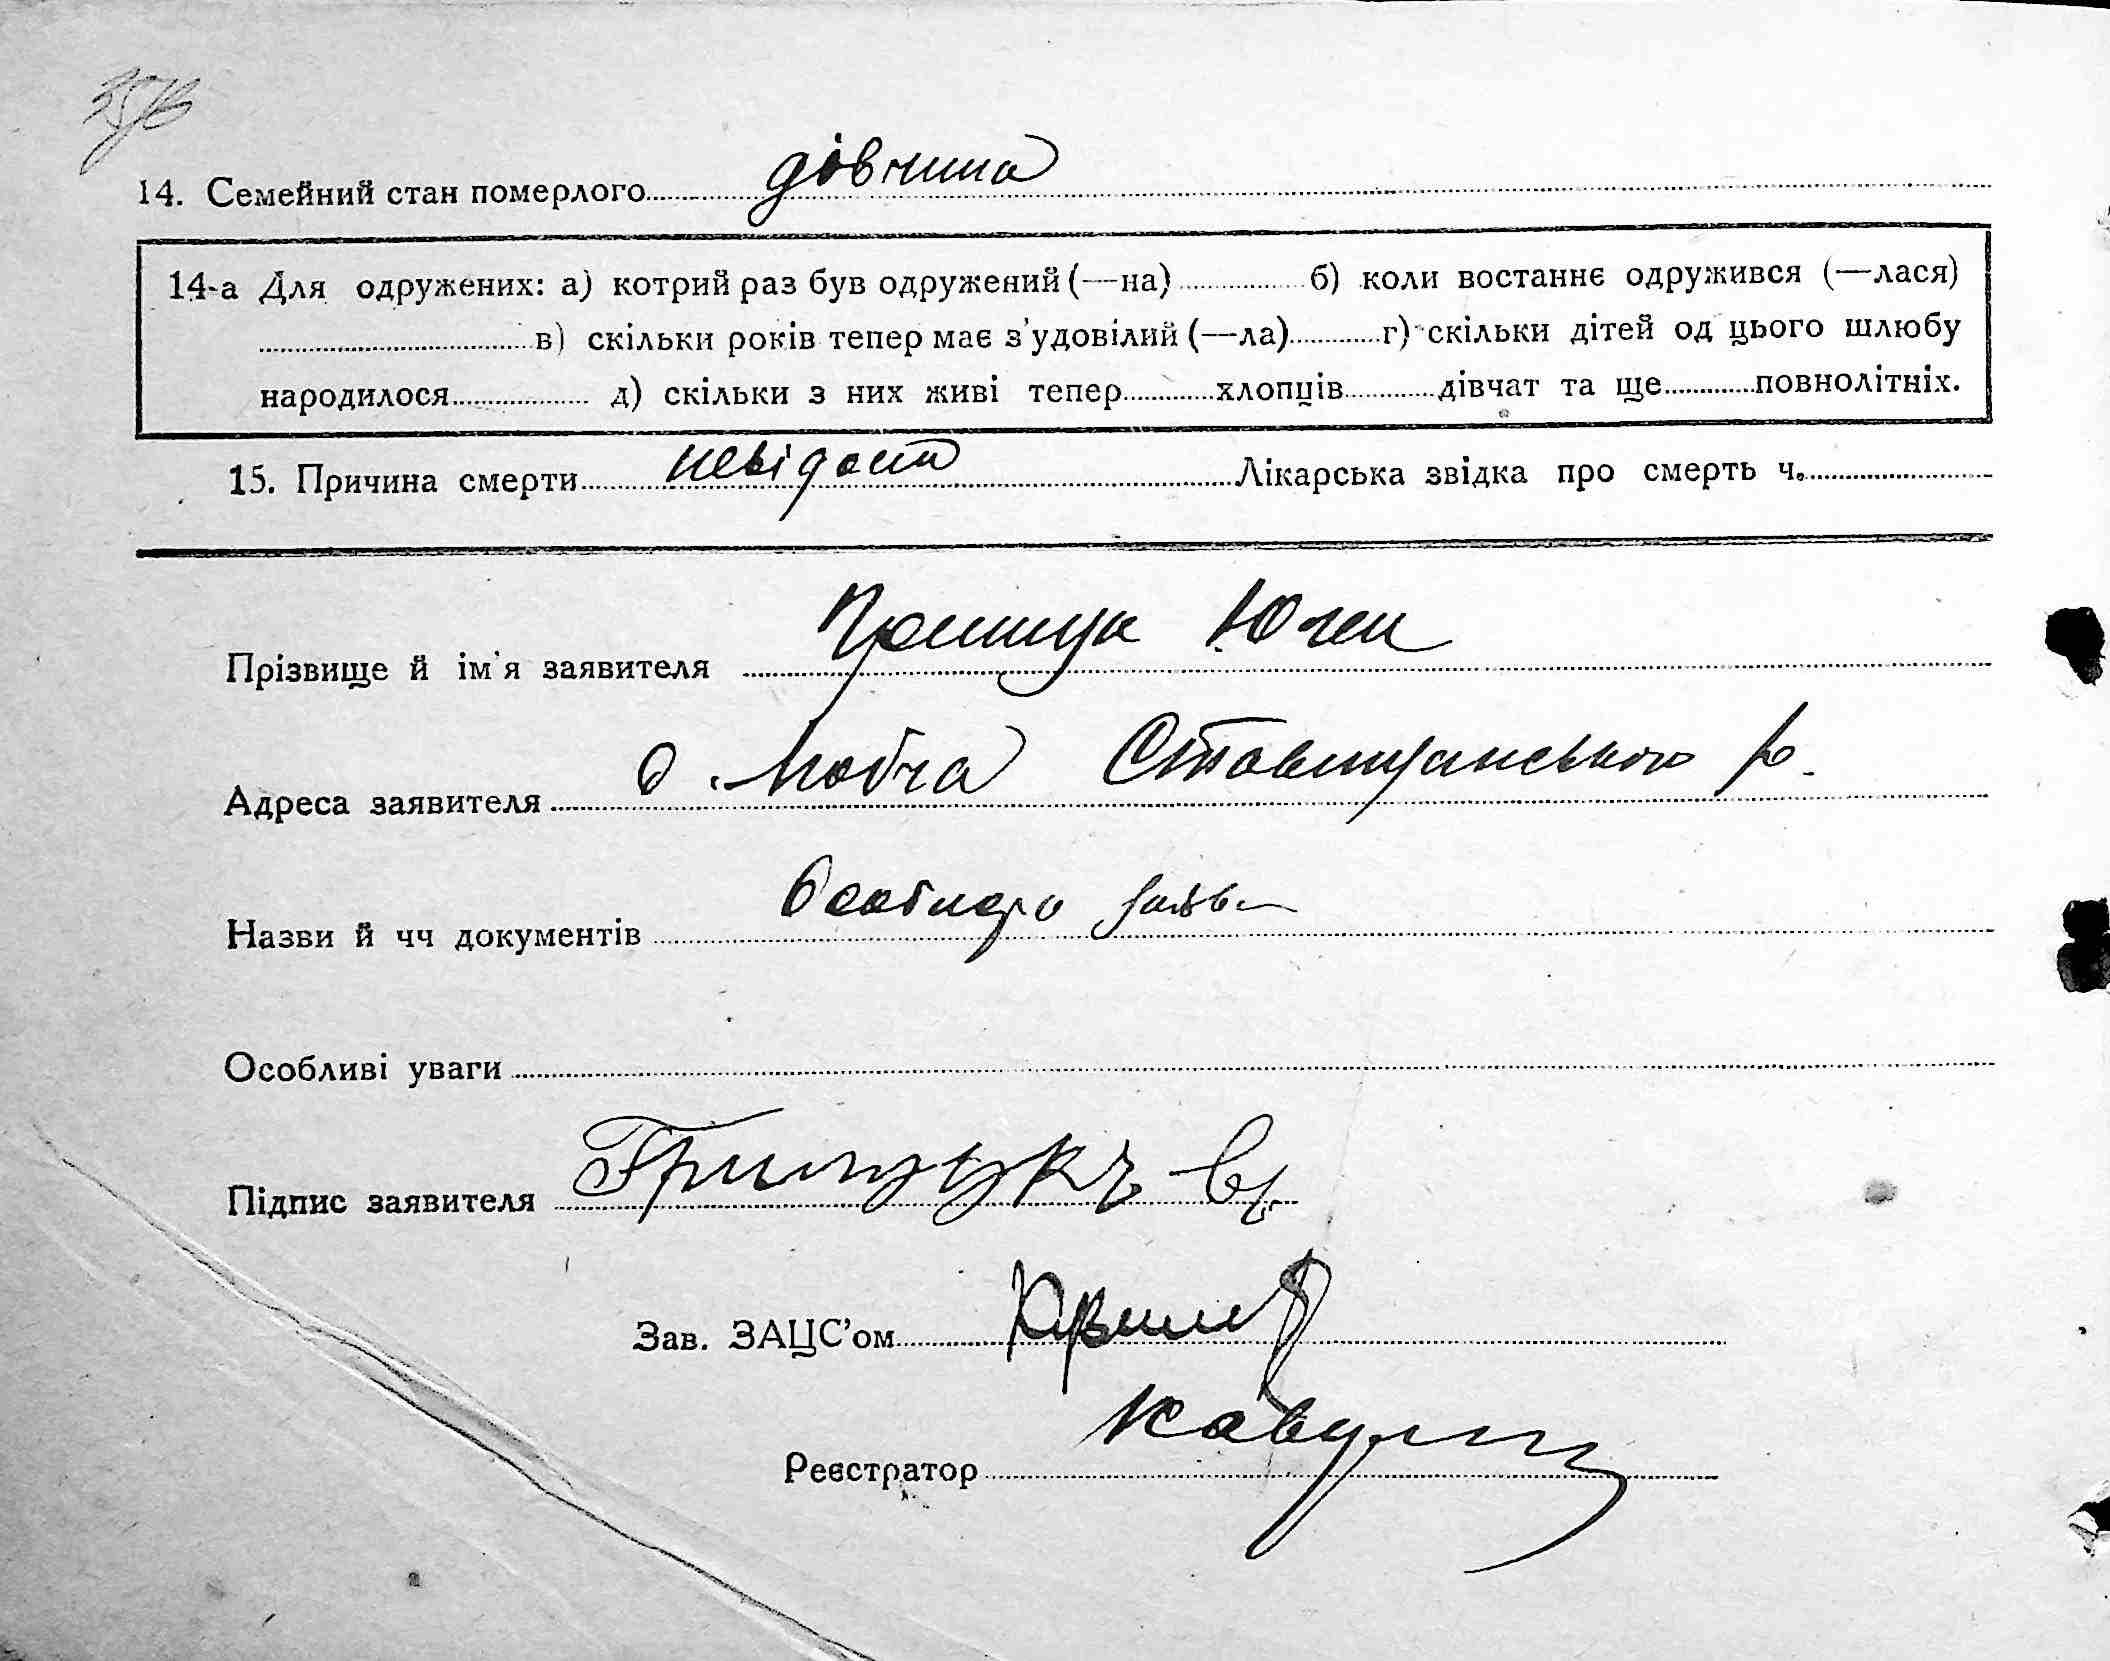 14. Семейний стан померлого дівчина
14-а Для одружених: а) котрий раз був одружений (—на) б) коли востаннє одружився (—лася)
в) скільки років тепер має з'удовілий (—ла) г) скільки дітей од цього шлюбу
народилося д) скільки з них живі тепер хлопців дівчат та ще повнолітніх.
15. Причина смерти невідома Лікарська звідка про смерть ч.
Прізвище й ім'я заявителя
Адреса заявителя с. Ставищанського р.
Назви й чч документів заява
Особливі уваги
Підпис заявителя
Зав. ЗАЦС'ом
Реєстратор